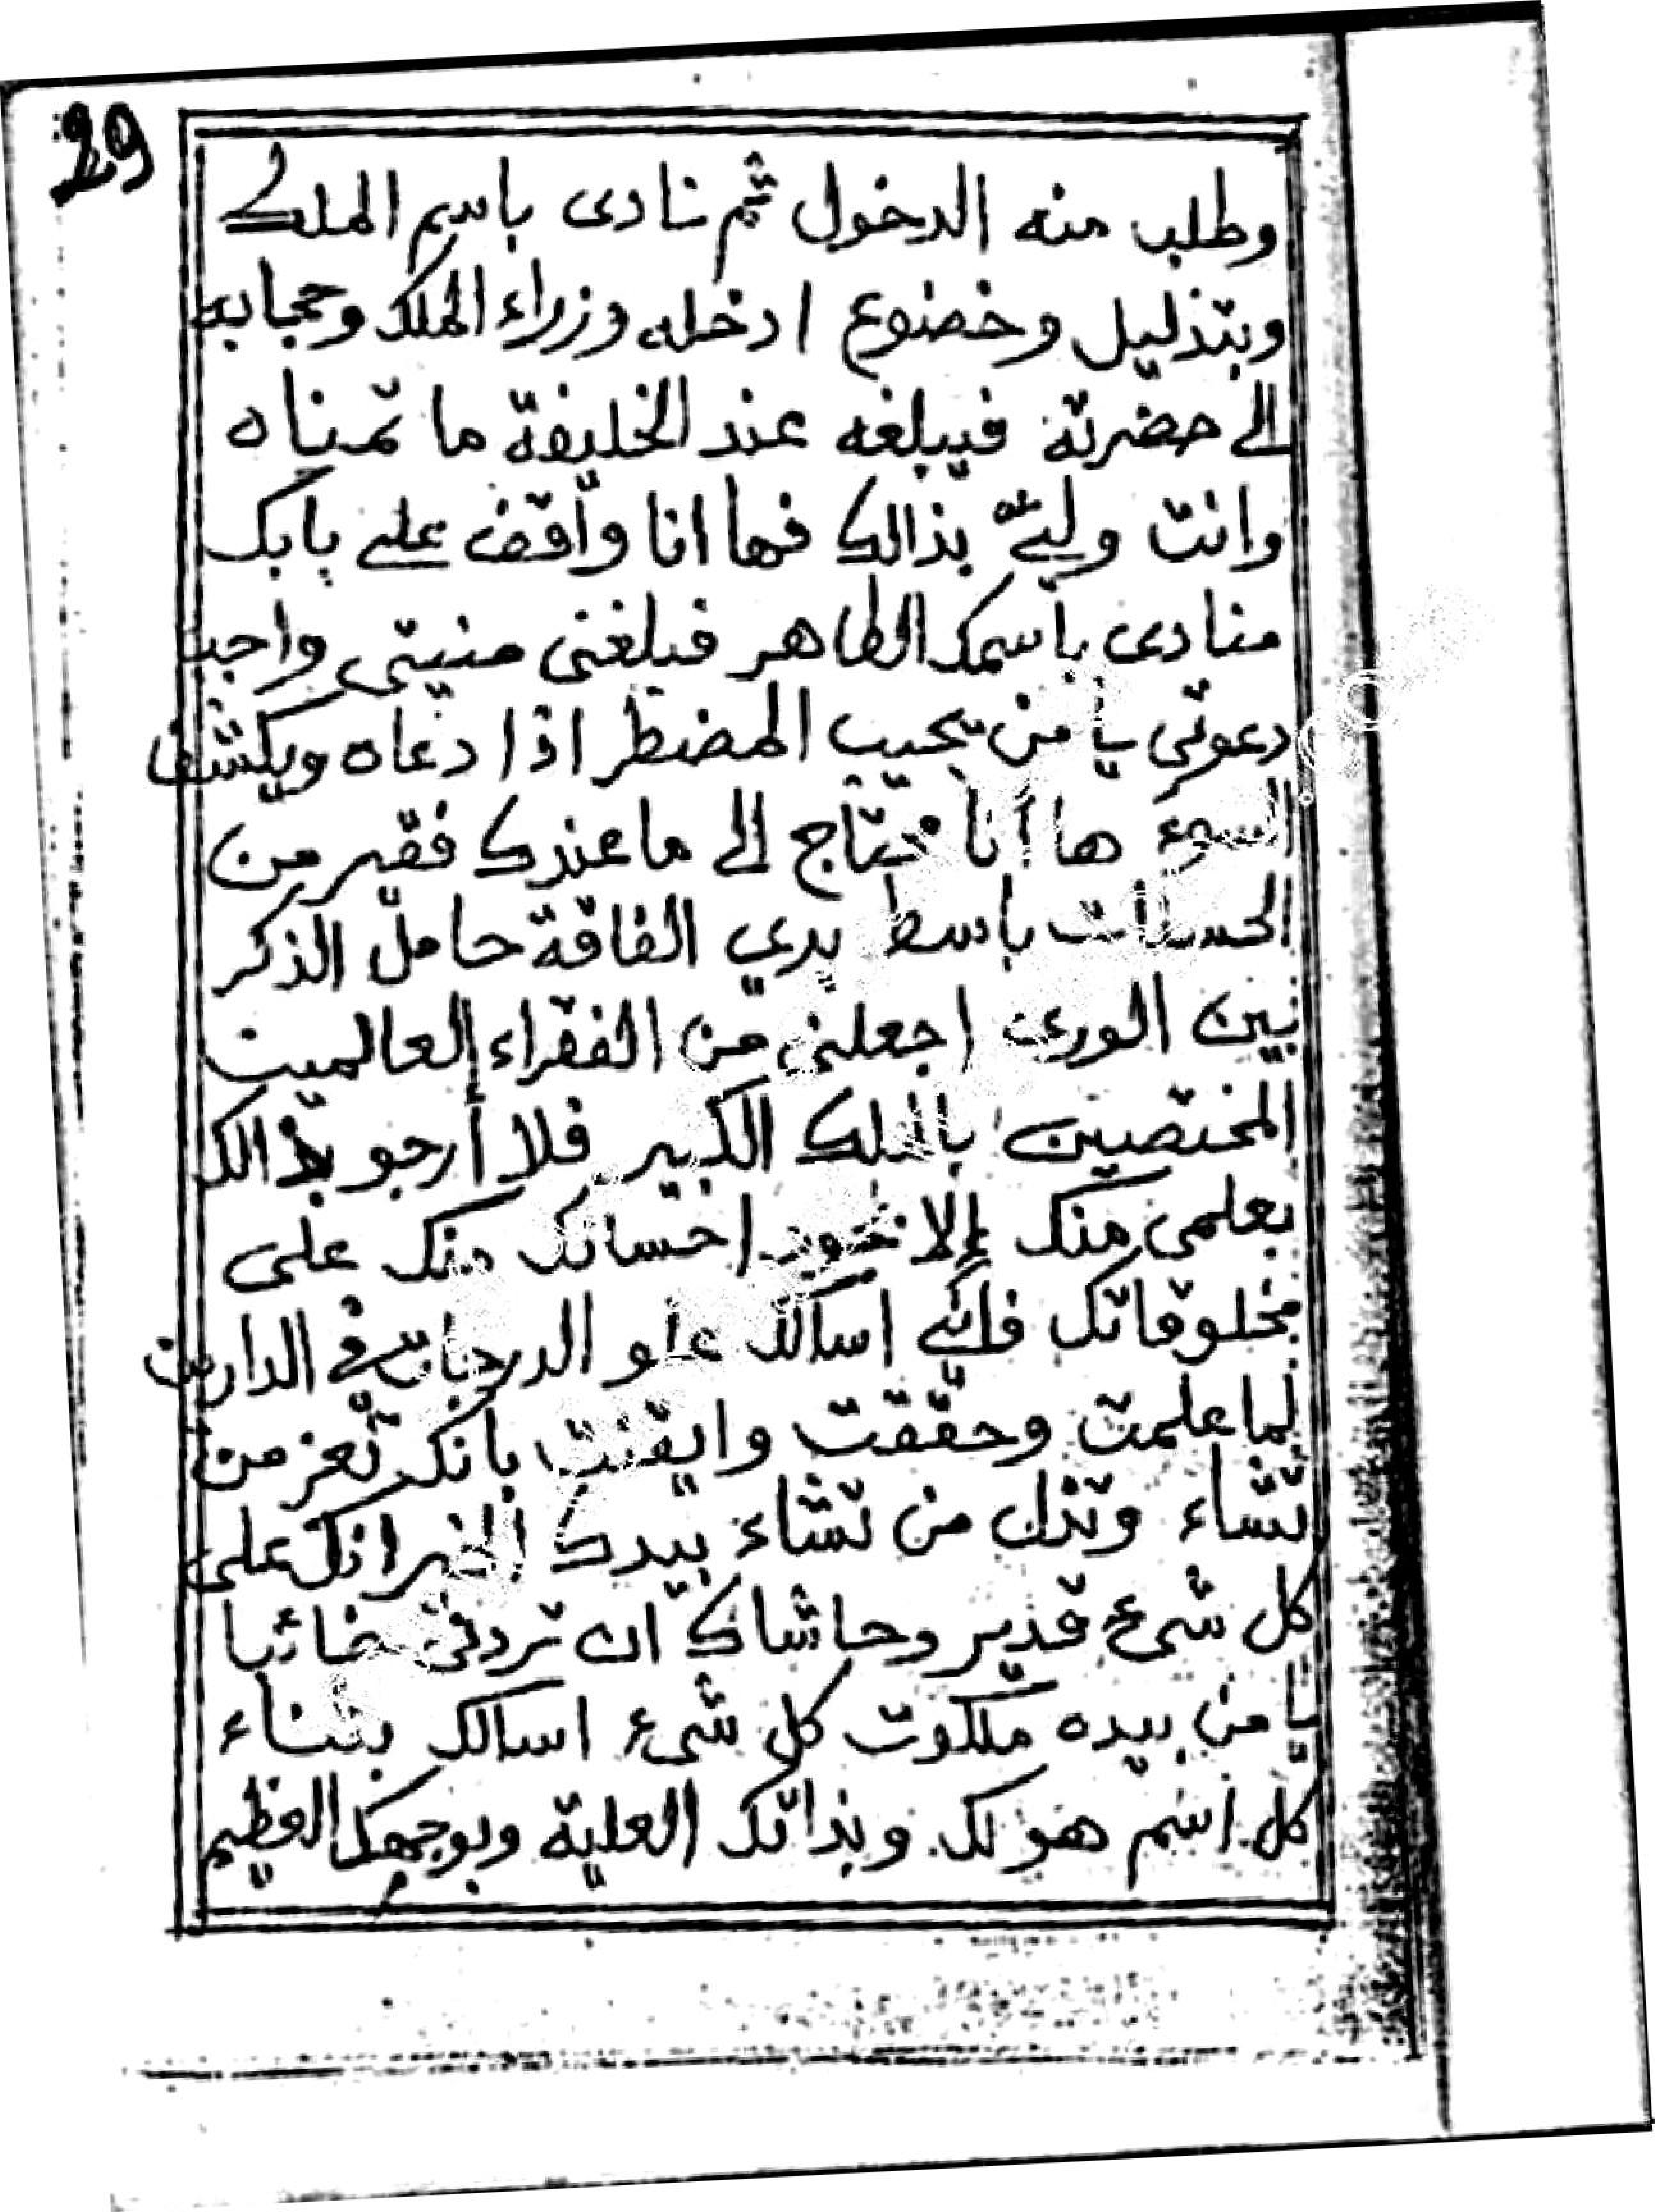 29
وطلب منه الدخول ثم نادى باسم الملك
وبتذليل وخضوع ادخله وزراء الملك وحجابه
الى حضرته فيبلغه عند الخليفة ما تمناه
وانت وليّ بذالك فها انا واقف على بابك
منادى باسمك الطاهر فبلغنى منيتى واجب
دعوتى يا من يجيب المضطر اذا دعاه ويكشف
السوء ها أنا محتاج الى ما عندك فقير من
الحسنات باسط يدي الفاقة حامل الذكر
بين الورى اجعلنى من الفقراء العالمين
المختصين بالملك الكبير فلا أرجو بذالك
بعلمى منك إلا احسانك منك على
مخلوقاتك فانّى اسالك علو الدرجات في الدارين
لما علمت وحققت وايقنت بانك تعز من
تشاء وتذل من تشاء بيدك الخير انك على
كل شىء قدير وحاشاك ان تردنى خائبا
يا من بيده ملكوت كل شىء اسالك بثناء
كل اسم هو لك وبذاتك العلية وبوجهك العظيم